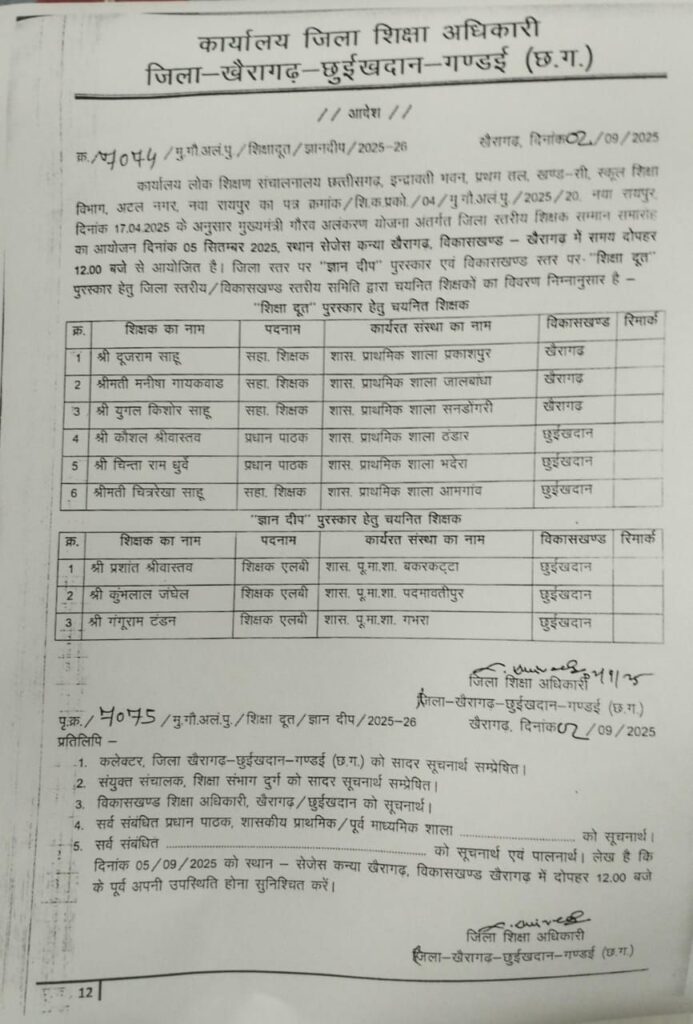 कार्यालय जिला शिक्षा अधिकारी
जिला–खैरागढ़–छुईखदान–गण्डई (छ.ग.)
// आदेश //
क्र./7074/मु.गौ.अलं.पु./शिक्षादूत/ज्ञानदीप/2025-26 खैरागढ़, दिनांक 02/09/2025
कार्यालय लोक शिक्षण संचालनालय छत्तीसगढ़, इन्द्रावती भवन, प्रथम तल, खण्ड-सी, स्कूल शिक्षा
विभाग, अटल नगर, नवा रायपुर का पत्र क्रमांक/शि.क.प्रको./04/मु.गौ.अलं.पु./2025/20, नवा रायपुर,
दिनांक 17.04.2025 के अनुसार मुख्यमंत्री गौरव अलंकरण योजना अंतर्गत जिला स्तरीय शिक्षक सम्मान समारोह
का आयोजन दिनांक 05 सितम्बर 2025, स्थान सेजेस कन्या खैरागढ़, विकासखण्ड – खैरागढ़ में समय दोपहर
12.00 बजे से आयोजित है। जिला स्तर पर "ज्ञान दीप" पुरस्कार एवं विकासखण्ड स्तर पर "शिक्षा दूत"
पुरस्कार हेतु जिला स्तरीय/विकासखण्ड स्तरीय समिति द्वारा चयनित शिक्षकों का विवरण निम्नानुसार है –
"शिक्षा दूत" पुरस्कार हेतु चयनित शिक्षक
क्र. शिक्षक का नाम पदनाम कार्यरत संस्था का नाम विकासखण्ड रिमार्क
1 श्री दूजराम साहू सहा. शिक्षक शास. प्राथमिक शाला प्रकाशपुर खैरागढ़
2 श्रीमती मनीषा गायकवाड सहा. शिक्षक शास. प्राथमिक शाला जालबांधा खैरागढ़
3 श्री युगल किशोर साहू सहा. शिक्षक शास. प्राथमिक शाला सनडोंगरी खैरागढ़
4 श्री कौशल श्रीवास्तव प्रधान पाठक शास. प्राथमिक शाला ठंडार छुईखदान
5 श्री चिन्ता राम धुर्वे प्रधान पाठक शास. प्राथमिक शाला भदेरा छुईखदान
6 श्रीमती चित्ररेखा साहू सहा. शिक्षक शास. प्राथमिक शाला आमगांव छुईखदान
"ज्ञान दीप" पुरस्कार हेतु चयनित शिक्षक
क्र. शिक्षक का नाम पदनाम कार्यरत संस्था का नाम विकासखण्ड रिमार्क
1 श्री प्रशांत श्रीवास्तव शिक्षक एलबी शास. पू.मा.शा. बकरकट्टा छुईखदान
2 श्री कुंभलाल जंघेल शिक्षक एलबी शास. पू.मा.शा. पदमावतीपुर छुईखदान
3 श्री गंगूराम टंडन शिक्षक एलबी शास. पू.मा.शा. गभरा छुईखदान
जिला शिक्षा अधिकारी
जिला–खैरागढ़–छुईखदान–गण्डई (छ.ग.)
पृ.क्र./7075/मु.गौ.अलं.पु./शिक्षा दूत/ज्ञान दीप/2025-26 खैरागढ़, दिनांक 02/09/2025
प्रतिलिपि –
1. कलेक्टर, जिला खैरागढ़–छुईखदान–गण्डई (छ.ग.) को सादर सूचनार्थ सम्प्रेषित।
2. संयुक्त संचालक, शिक्षा संभाग दुर्ग को सादर सूचनार्थ सम्प्रेषित।
3. विकासखण्ड शिक्षा अधिकारी, खैरागढ़/छुईखदान को सूचनार्थ।
4. सर्व संबंधित प्रधान पाठक, शासकीय प्राथमिक/पूर्व माध्यमिक शाला .............................. को सूचनार्थ।
5. सर्व संबंधित ...................................................... को सूचनार्थ एवं पालनार्थ। लेख है कि
दिनांक 05/09/2025 को स्थान – सेजेस कन्या खैरागढ़, विकासखण्ड खैरागढ़ में दोपहर 12.00 बजे
के पूर्व अपनी उपस्थिति होना सुनिश्चित करें।
जिला शिक्षा अधिकारी
जिला–खैरागढ़–छुईखदान–गण्डई (छ.ग.)
12